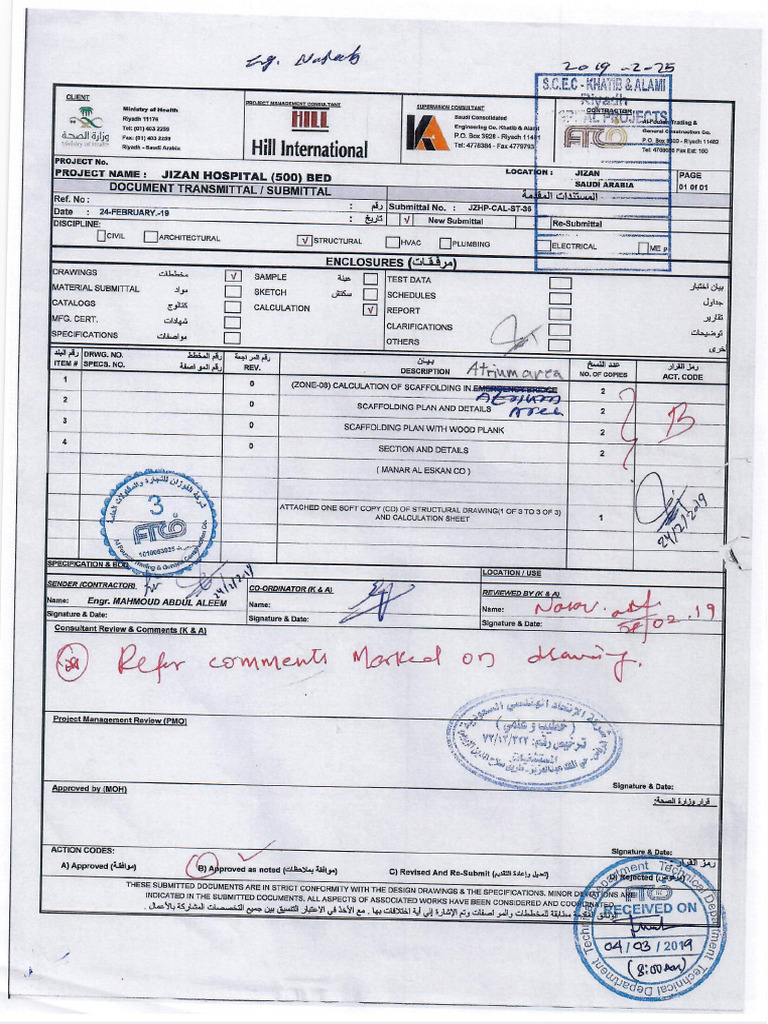 Eng. Nareeb
2019-2-25
S.C.E.C - KHATIB & ALAMI
Riyadh
SPECIAL PROJECTS
CLIENT
وزارة الصحة
Ministry of Health
Ministry of Health
Riyadh 11176
Tel: (01) 403 2259
Fax: (01) 403 2259
Riyadh - Saudi Arabia
PROJECT MANAGEMENT CONSULTANT
HILL
Hill International
SUPERVISION CONSULTANT
KA
Saudi Consolidated
Engineering Co. Khatib & Alami
P.O. Box 3928 - Riyadh 11481
Tel: 4778384 - Fax 4779793
CONTRACTOR
FTCO
Trading &
General Construction Co.
Riyadh 11482
PROJECT No.
PROJECT NAME : JIZAN HOSPITAL (500) BED
LOCATION : JIZAN
SAUDI ARABIA
PAGE
01 of 01
DOCUMENT TRANSMITTAL / SUBMITTAL
المستندات المقدمة
Ref. No : : رقم
Submittal No. : JZHP-CAL-ST-36
Date : 24-FEBRUARY.-19 : تاريخ
√ New Submittal
Re-Submittal
DISCIPLINE:
CIVIL
ARCHITECTURAL
√ STRUCTURAL
HVAC
PLUMBING
ELECTRICAL
ME p
ENCLOSURES (مرفقات)
DRAWINGS مخططات √
SAMPLE عينة
TEST DATA بيان اختبار
MATERIAL SUBMITTAL مواد
SKETCH سكتش
SCHEDULES جداول
CATALOGS كتالوج
CALCULATION √
REPORT تقارير
MFG. CERT. شهادات
CLARIFICATIONS توضيحات
SPECIFICATIONS مواصفات
OTHERS أخرى
رقم البند
ITEM #
رقم المخطط DRWG. NO.
رقم المواصفة SPECS. NO.
رقم المراجعة
REV.
بيان
DESCRIPTION
Atrium area
عدد النسخ
NO. OF COPIES
رمز القرار
ACT. CODE
1 0 (ZONE-08) CALCULATION OF SCAFFOLDING IN EMERGENCY BRIDGE 2
Atrium
Area
2 0 SCAFFOLDING PLAN AND DETAILS 2
3 0 SCAFFOLDING PLAN WITH WOOD PLANK 2
4 0 SECTION AND DETAILS 2
B
( MANAR AL ESKAN CO )
ATTACHED ONE SOFT COPY (CD) OF STRUCTURAL DRAWING(1 OF 3 TO 3 OF 3)
AND CALCULATION SHEET 1
24/2/2019
3
FTCO
SPECIFICATION & BOQ
LOCATION / USE
SENDER (CONTRACTOR)
24/2/2019
CO-ORDINATOR (K & A)
REVIEWED BY (K & A)
Name: Engr. MAHMOUD ABDUL ALEEM
Name:
Name:
02.19
Signature & Date:
Signature & Date:
Signature & Date:
Consultant Review & Comments (K & A)
Refer comments Marked on drawing.
Project Management Review (PMO)
( خطيب و علمي )
Signature & Date:
Approved by (MOH)
قرار وزارة الصحة:
Signature & Date:
ACTION CODES:
رمز القرار:
A) Approved (موافقة)
B) Approved as noted (موافقة بملاحظات)
C) Revised And Re-Submit (تعديل وإعادة التقديم)
D) Rejected (مرفوض)
THESE SUBMITTED DOCUMENTS ARE IN STRICT CONFORMITY WITH THE DESIGN DRAWINGS & THE SPECIFICATIONS. MINOR DEVIATIONS ARE
INDICATED IN THE SUBMITTED DOCUMENTS. ALL ASPECTS OF ASSOCIATED WORKS HAVE BEEN CONSIDERED AND COORDINATED.
مطابقة للمخططات والمواصفات وتم الإشارة إلى أية اختلافات بها , مع الأخذ في الاعتبار التنسيق بين جميع التخصصات المشاركة بالأعمال .
Technical Department Technical Department
FTCO
RECEIVED ON
04/03/2019
(8:00am)